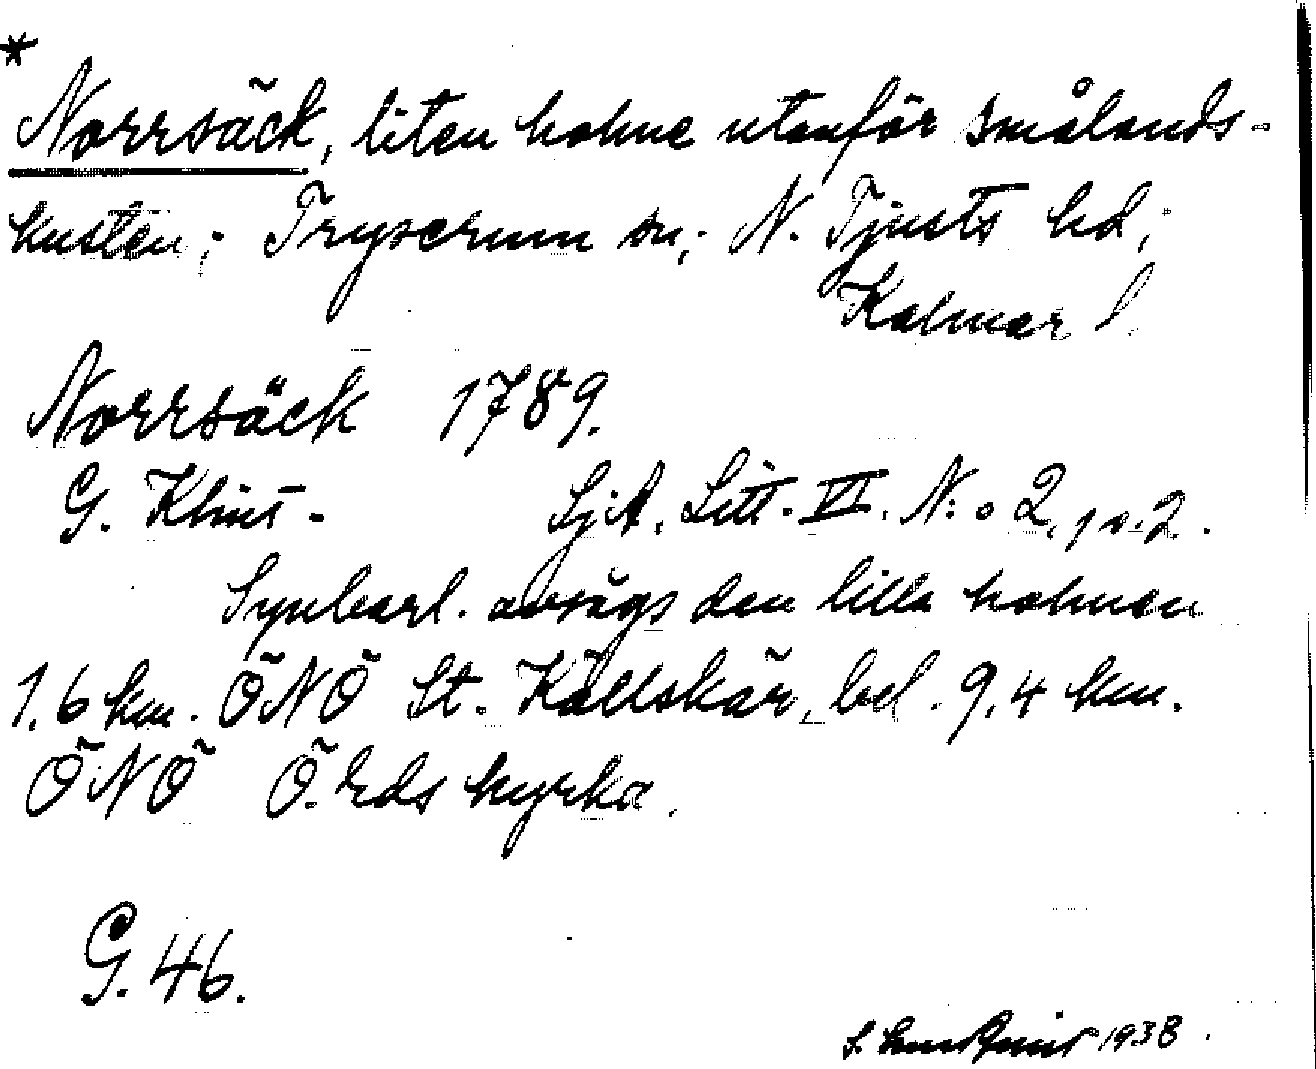 *
Norrsäck, liten holme utanför Smålands-
kusten; Tryserum sn; N. Tjusts hd;
Kalmar l.
Norrsäck 1789.
G. Klint. SjA. Litt. VI. N:o 2, 1 o. 2.
Synbarl. avsågs den lilla holmen
1,6 km. ÖNÖ St. Källskär, bel. 9,4 km.
ÖNÖ Ö. Eds kyrka.
G. 46.
1938.